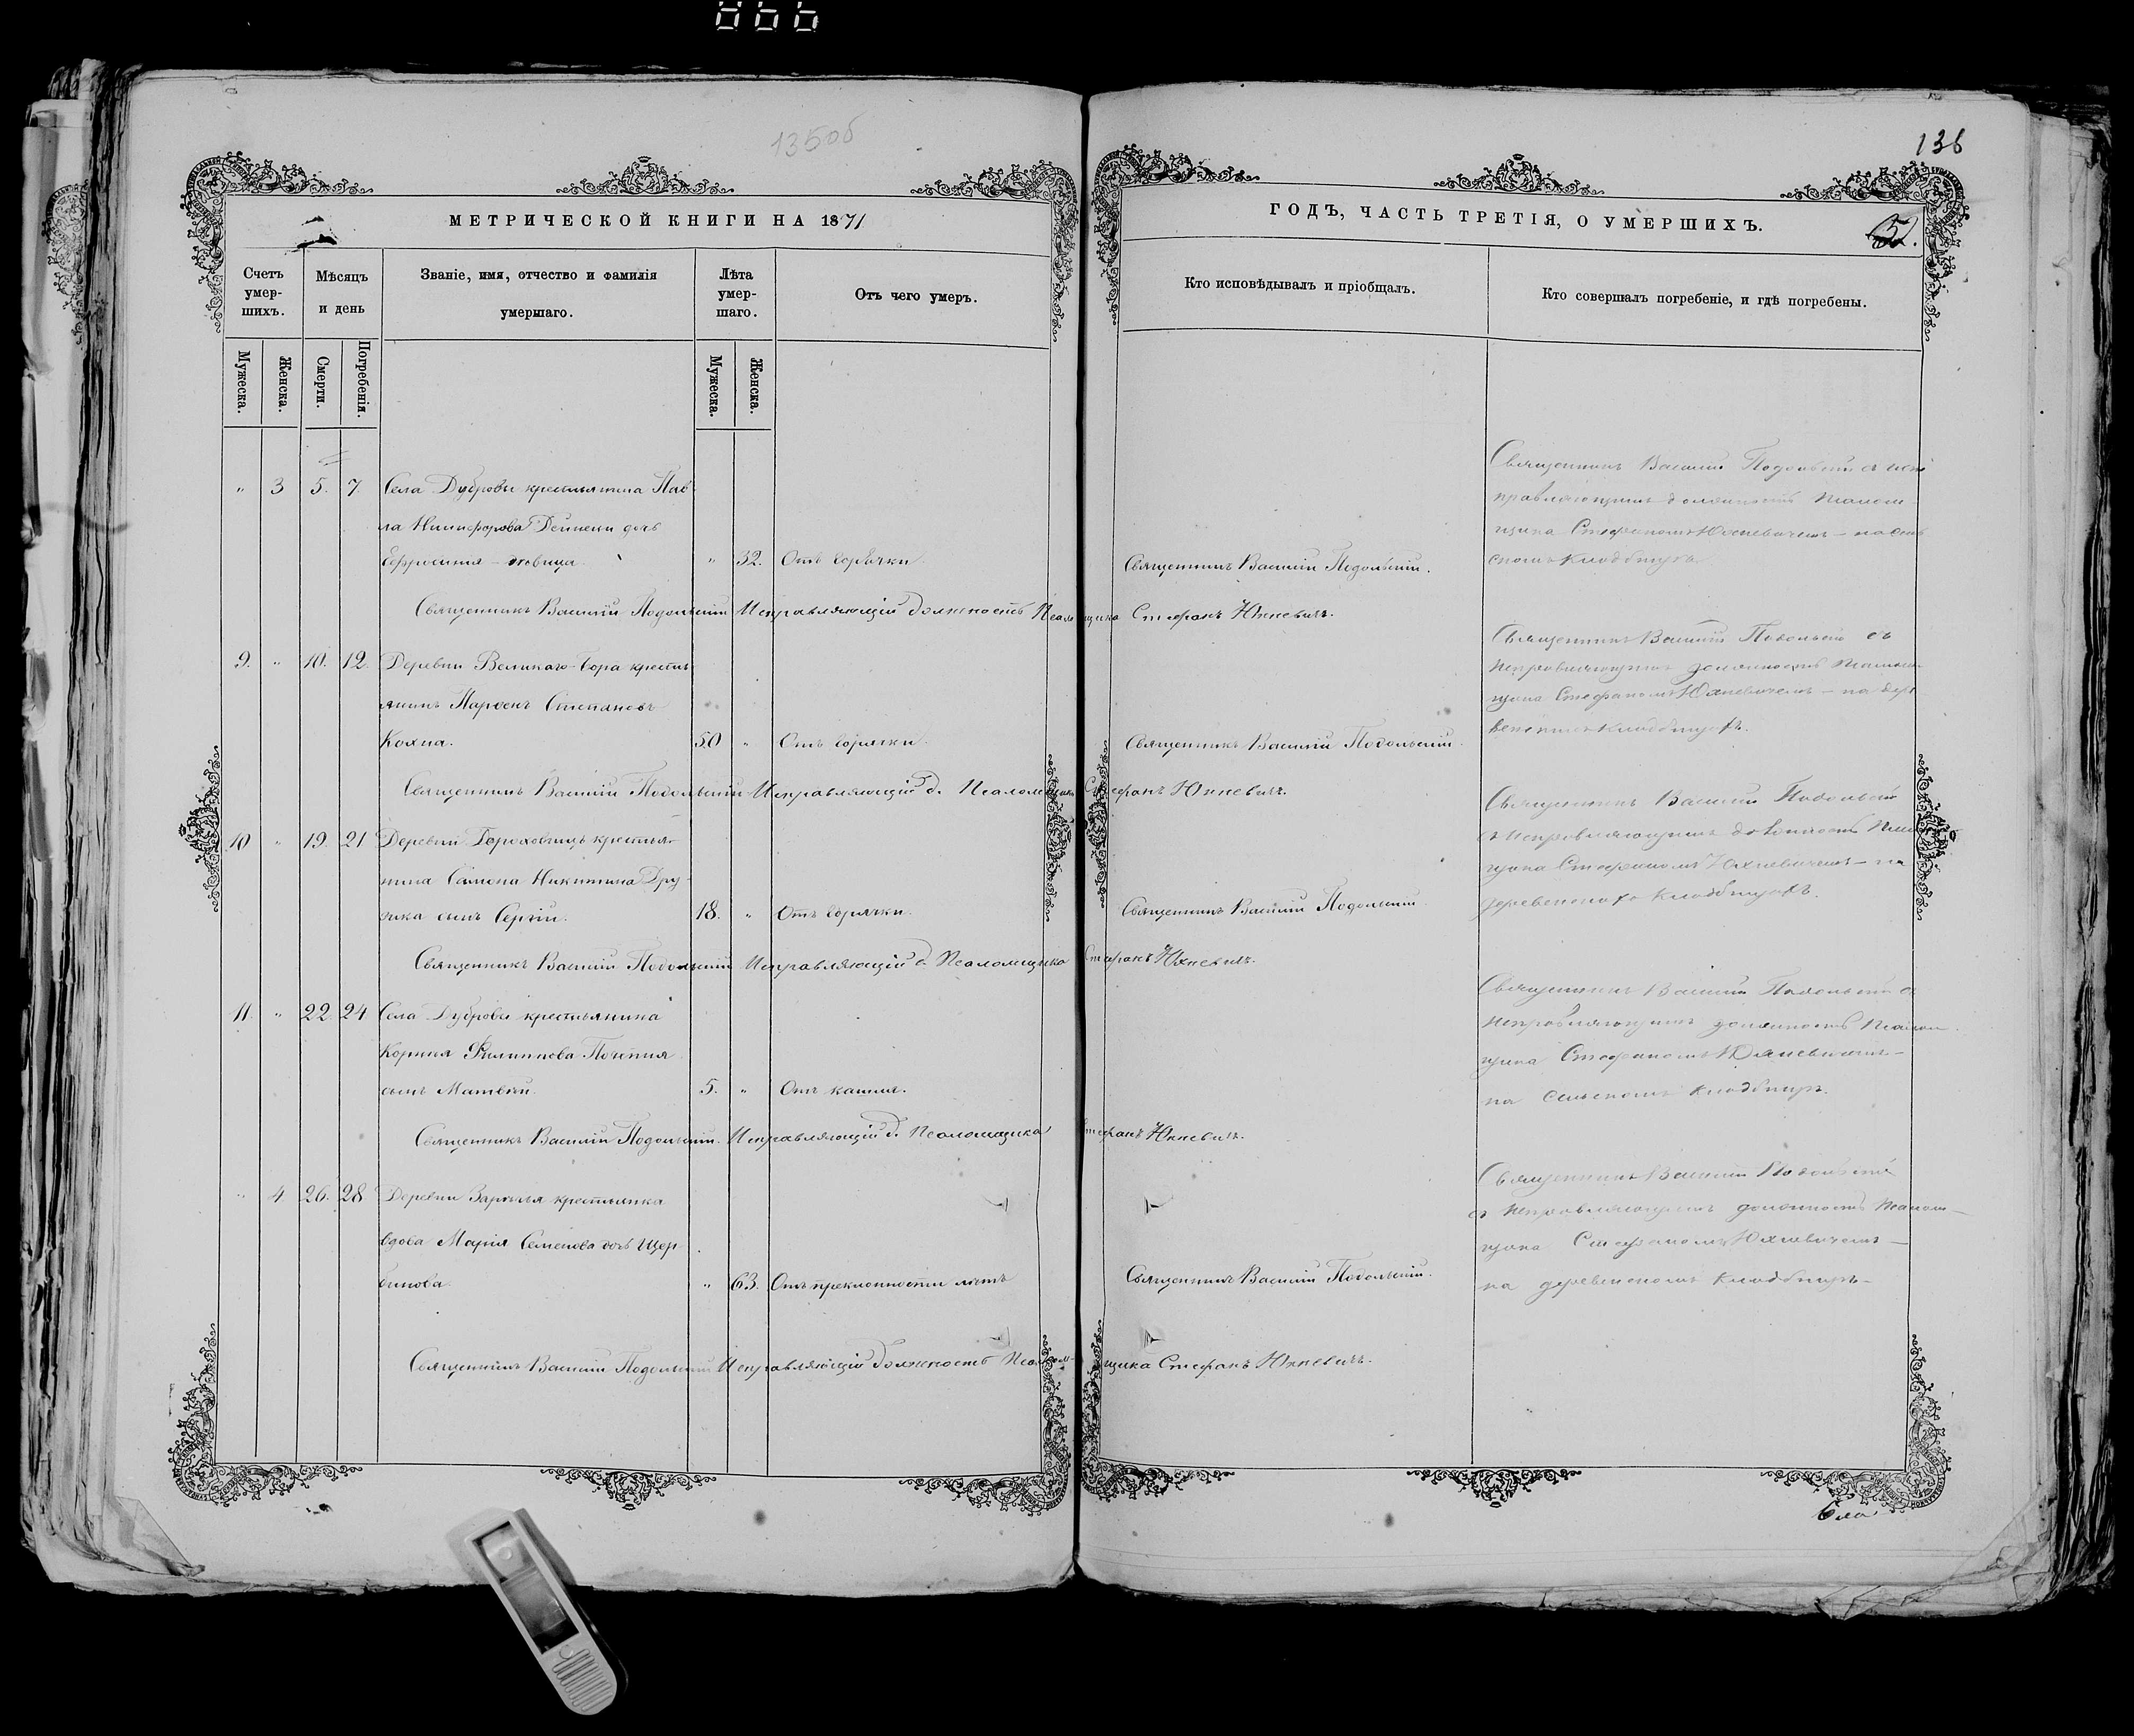 135об
136
МЕТРИЧЕСКОЙ КНИГИ НА 1871
Счетъ умер-шихъ.
Мѣсяцъ и день
Званіе, имя, отчество и фамилія умершаго.
Лѣта умер-шаго.
Отъ чего умеръ.
Мужеска.
Женска.
Смерти.
Погребенія.
Мужеска.
Женска.
ГОДЪ, ЧАСТЬ ТРЕТІЯ, О УМЕРШИХЪ.
Кто исповѣдывалъ и пріобщалъ.
Кто совершалъ погребеніе, и гдѣ погребены.
" 3 5. 7. Села Дубровы крестьянина Пав
ла Никифорова Дейнеки дочь
Ефросинія - вдовица " 32. Отъ горячки. Священникъ Василій Подольскій.
Священникъ Василій Подольскій съ испр
правляющимъ должность Псалом
щика Стефаномъ Юхневичемъ - на сель
скомъ кладбищѣ
Священникъ Василій Подольскій Исправляющій должность Псаломщика Стефанъ Юхневичъ.
9. " 10. 12. Деревни Великаго-Бора кресть
янинъ Парѳенъ Степановъ
Кохна. 50 " Отъ горячки. Священникъ Василій Подольскій.
Священникъ Василій Подольскій съ
исправляющимъ должность Псалом
щика Стефаномъ Юхневичемъ - на дер
венскомъ кладбищѣ.
Священникъ Василій Подольскій Исправляющій д. Псаломщика Стефанъ Юхневичъ.
10 " 19. 21 Деревни Гороховищъ крестья-
нина Самона Никитина Дру-
зика сынъ Сергій. 18. " Отъ горячки. Священникъ Василій Подольскій.
Священникъ Василій Подольскій
съ исправляющимъ должность Псалом
щика Стефаномъ Юхневичемъ - на
деревенскомъ кладбищѣ.
Священникъ Василій Подольскій Исправляющій д. Псаломщика Стефанъ Юхневичъ.
11. " 22. 24 Села Дубровы крестьянина
Корнія Филиппова
сынъ Матвѣй. 5. " Отъ кашля.
Священникъ Василій Подольскій съ
исправляющимъ должность Псалом
щика Стефаномъ Юхневичемъ -
на сельскомъ кладбищѣ.
Священникъ Василій Подольскій. Исправляющій д. Псаломщика Стефанъ Юхневичъ.
" 4 26. 28. Деревни Зарѣчья крестьянка
вдова Марія Семенова дочь Щер-
бинова " 63. Отъ преклонности лѣтъ Священникъ Василій Подольскій.
Священникъ Василій Подольскій
съ исправляющимъ должность Псалом-
щика Стефаномъ Юхневичемъ -
на деревенскомъ кладбищѣ -
Священникъ Василій Подольскій Исправляющій должность Псалом-щика Стефанъ Юхневичъ.